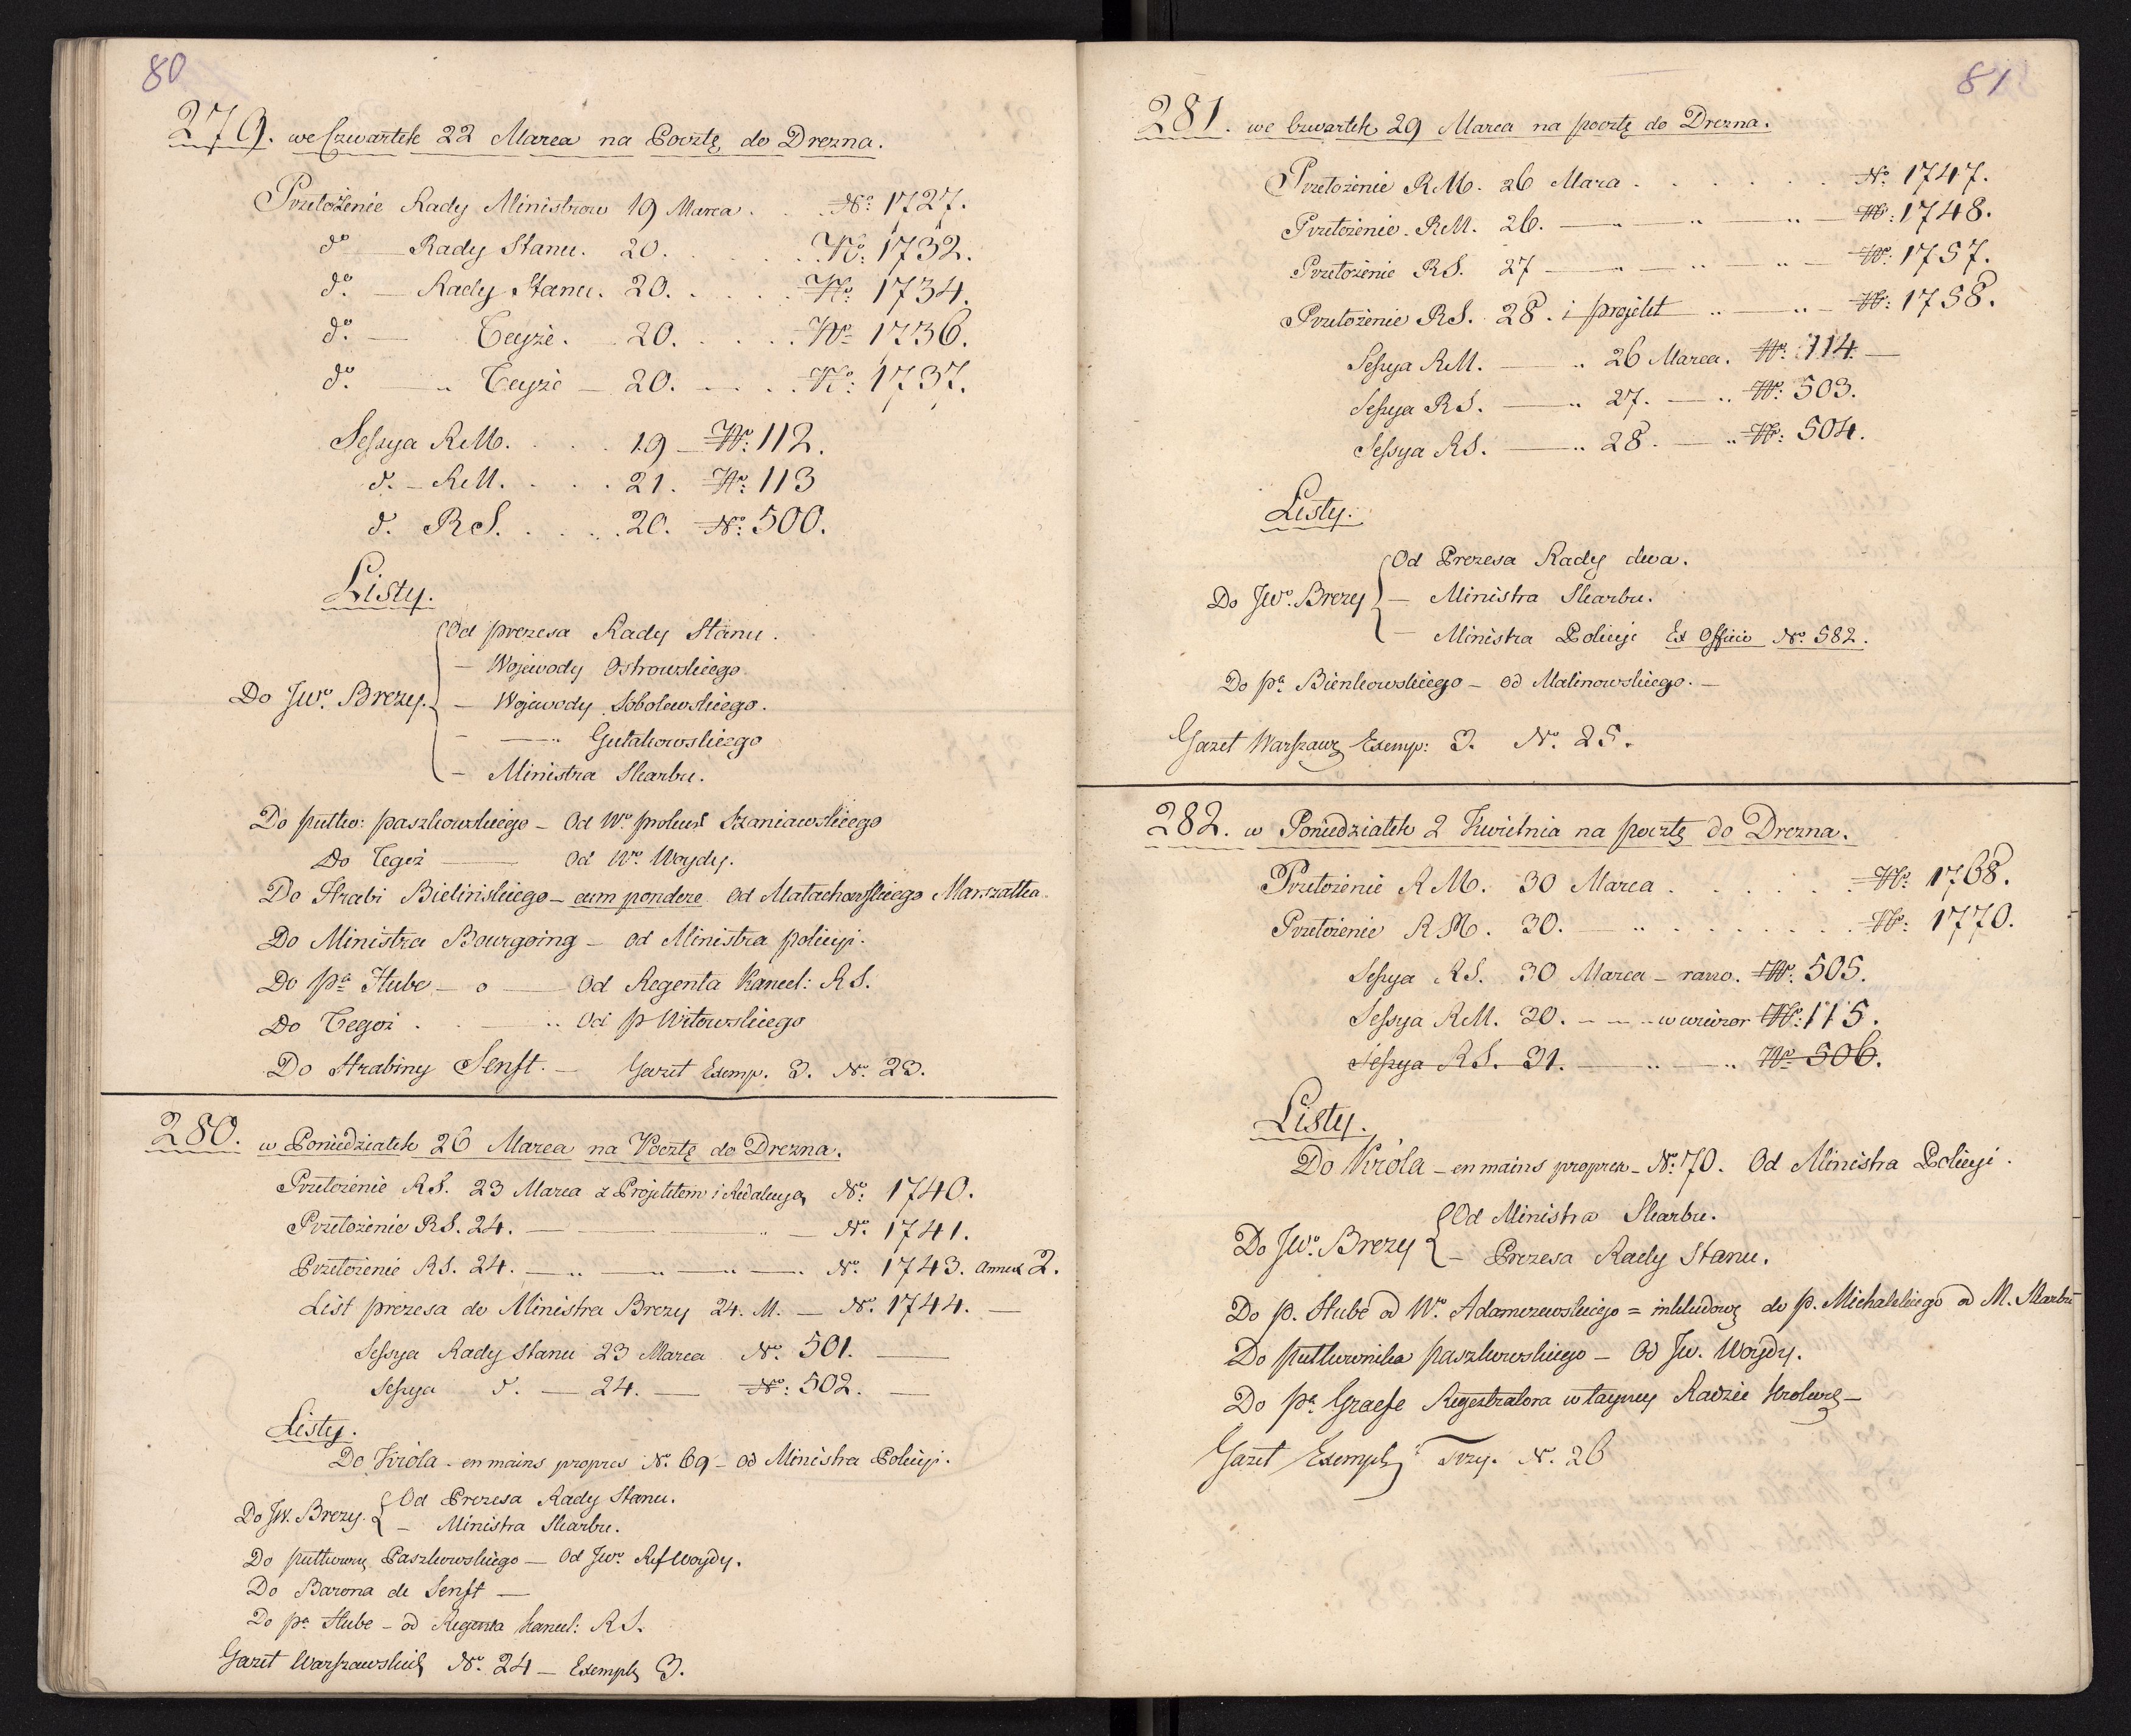 80
279. we Czwartek 22 Marca na Pocztę do Drezna.
Przełożenie Rady Ministrow 19 Marca . . . No: 1727.
do — Rady Stanu. 20. . . . . . . No: 1732.
do. — Rady Stanu. 20. . . . . No: 1734.
do. — Teyże. — 20. . . . . . No: 1736.
do. — „ Teyże — 20. — . . . No: 1737.
Sessya RM. . . . . 19 — No: 112.
d. — RM. . . . . 21. No: 113
d. RS. . . . . . 20. No: 500.
Listy.
Od prezesa Rady Stanu.
— Wojewody Ostrowskiego.
Do Jwo. Brezy. — Wojewody Sobolewskiego.
— — „ Gutakowskiego
— Ministra Skarbu.
Do pułko: paszkowskiego — Od Wo. prokur Szaniawskiego
Do Tegoż — Od Wo. Woydy.
Do Hrabi Bielińskiego — cum pondere Od Małachowskiego Marszałka.
Do Ministra Bourgoing — od Ministra policyi.
Do pa Hube — o — Od Regenta Kancel: RS.
Do Tegoż . . — „ Od p Witowskiego
Do Hrabiny Senft. — Gazet Exemp. 3. No. 23.
280. w Poniedziałek 26 Marca na Pocztę do Drezna.
Przełożenie RS. 23 Marca z Projektem i Redakcyą No: 1740.
Przełożenie RS. 24. — „ — No. 1741.
Przełożenie RS. 24. — „ — „ — „ — No. 1743. Annex 2.
List prezesa do Ministra Brezy 24. M. — No. 1744. —
Sessya Rady Stanu 23 Marca No. 501. —
Sessya d. — 24. — No: 502. —
Listy.
Do Króla — en mains propres No. 69 — od Ministra Policyi.
Od Prezesa Rady Stanu.
Do JW. Brezy. — Ministra Skarbu.
Do pułkown Paszkowskiego — Od Jwo. Ref Woydy.
Do Barona de Senft —
Do pa Hube — od Regenta Kancel: RS.
Gazet Warszawskich No. 24 — Exempl 3.
81
281. we Czwartek 29 Marca na pocztę do Drezna.
Przełożenie RM. 26 Marca . . . . . . No: 1747.
Przełożenie. RM. 26. — „ — „ — No: 1748.
Przełożenie RS. 27 — „ — „ — „ — No: 1757.
Przełożenie RS. 28. i projekt „ — „ — No: 1758.
Sessya RM. — „ 26 Marca. No. 114. —
Sessya RS. — „ 27. — „ No: 503.
Sessya RS. — „ 28. — „ No: 504.
Listy.
Od Prezesa Rady dwa.
Do Jwo. Brezy — Ministra Skarbu.
— Ministra Policyi Ex Officio No. 582.
Do pa Bienkowskiego — od Malinowskiego. —
Gazet Warszaw Exemp: 3. No. 25.
282. w Poniedziałek 2 Kwietnia na pocztę do Drezna.
Przełożenie RM. 30 Marca . . . . . . No: 1768.
Przełożenie RM. 30. — „ . . . . . . No: 1770.
Sessya RS. 30 Marca — rano. No. 505.
Sessya RM. 30. — — „ w wieczor No: 115.
Sessya RS. 31. — „ — „ No. 506.
Listy.
Do Króla — en mains propres — No: 70. Od Ministra Policyi.
Od Ministra Skarbu.
Do Jwo. Brezy — Prezesa Rady Stanu.
Do p. Hube od Wo. Adamczewskiego = inkludowę do p. Michalskiego od M. Skarbu
Do pułkownika paszkowskiego — Od Jw. Woydy.
Do pa Graefe Regestratora w taynej Radzie Krolews —
Gazet Exempl: Trzy. No. 26